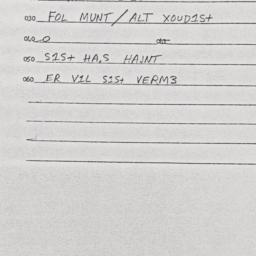 030 FOL MUNT/ALT XOUD1S+
040 O
050 S1S+ HA,S HAINT
060 ER V1L S1S+ VERM3